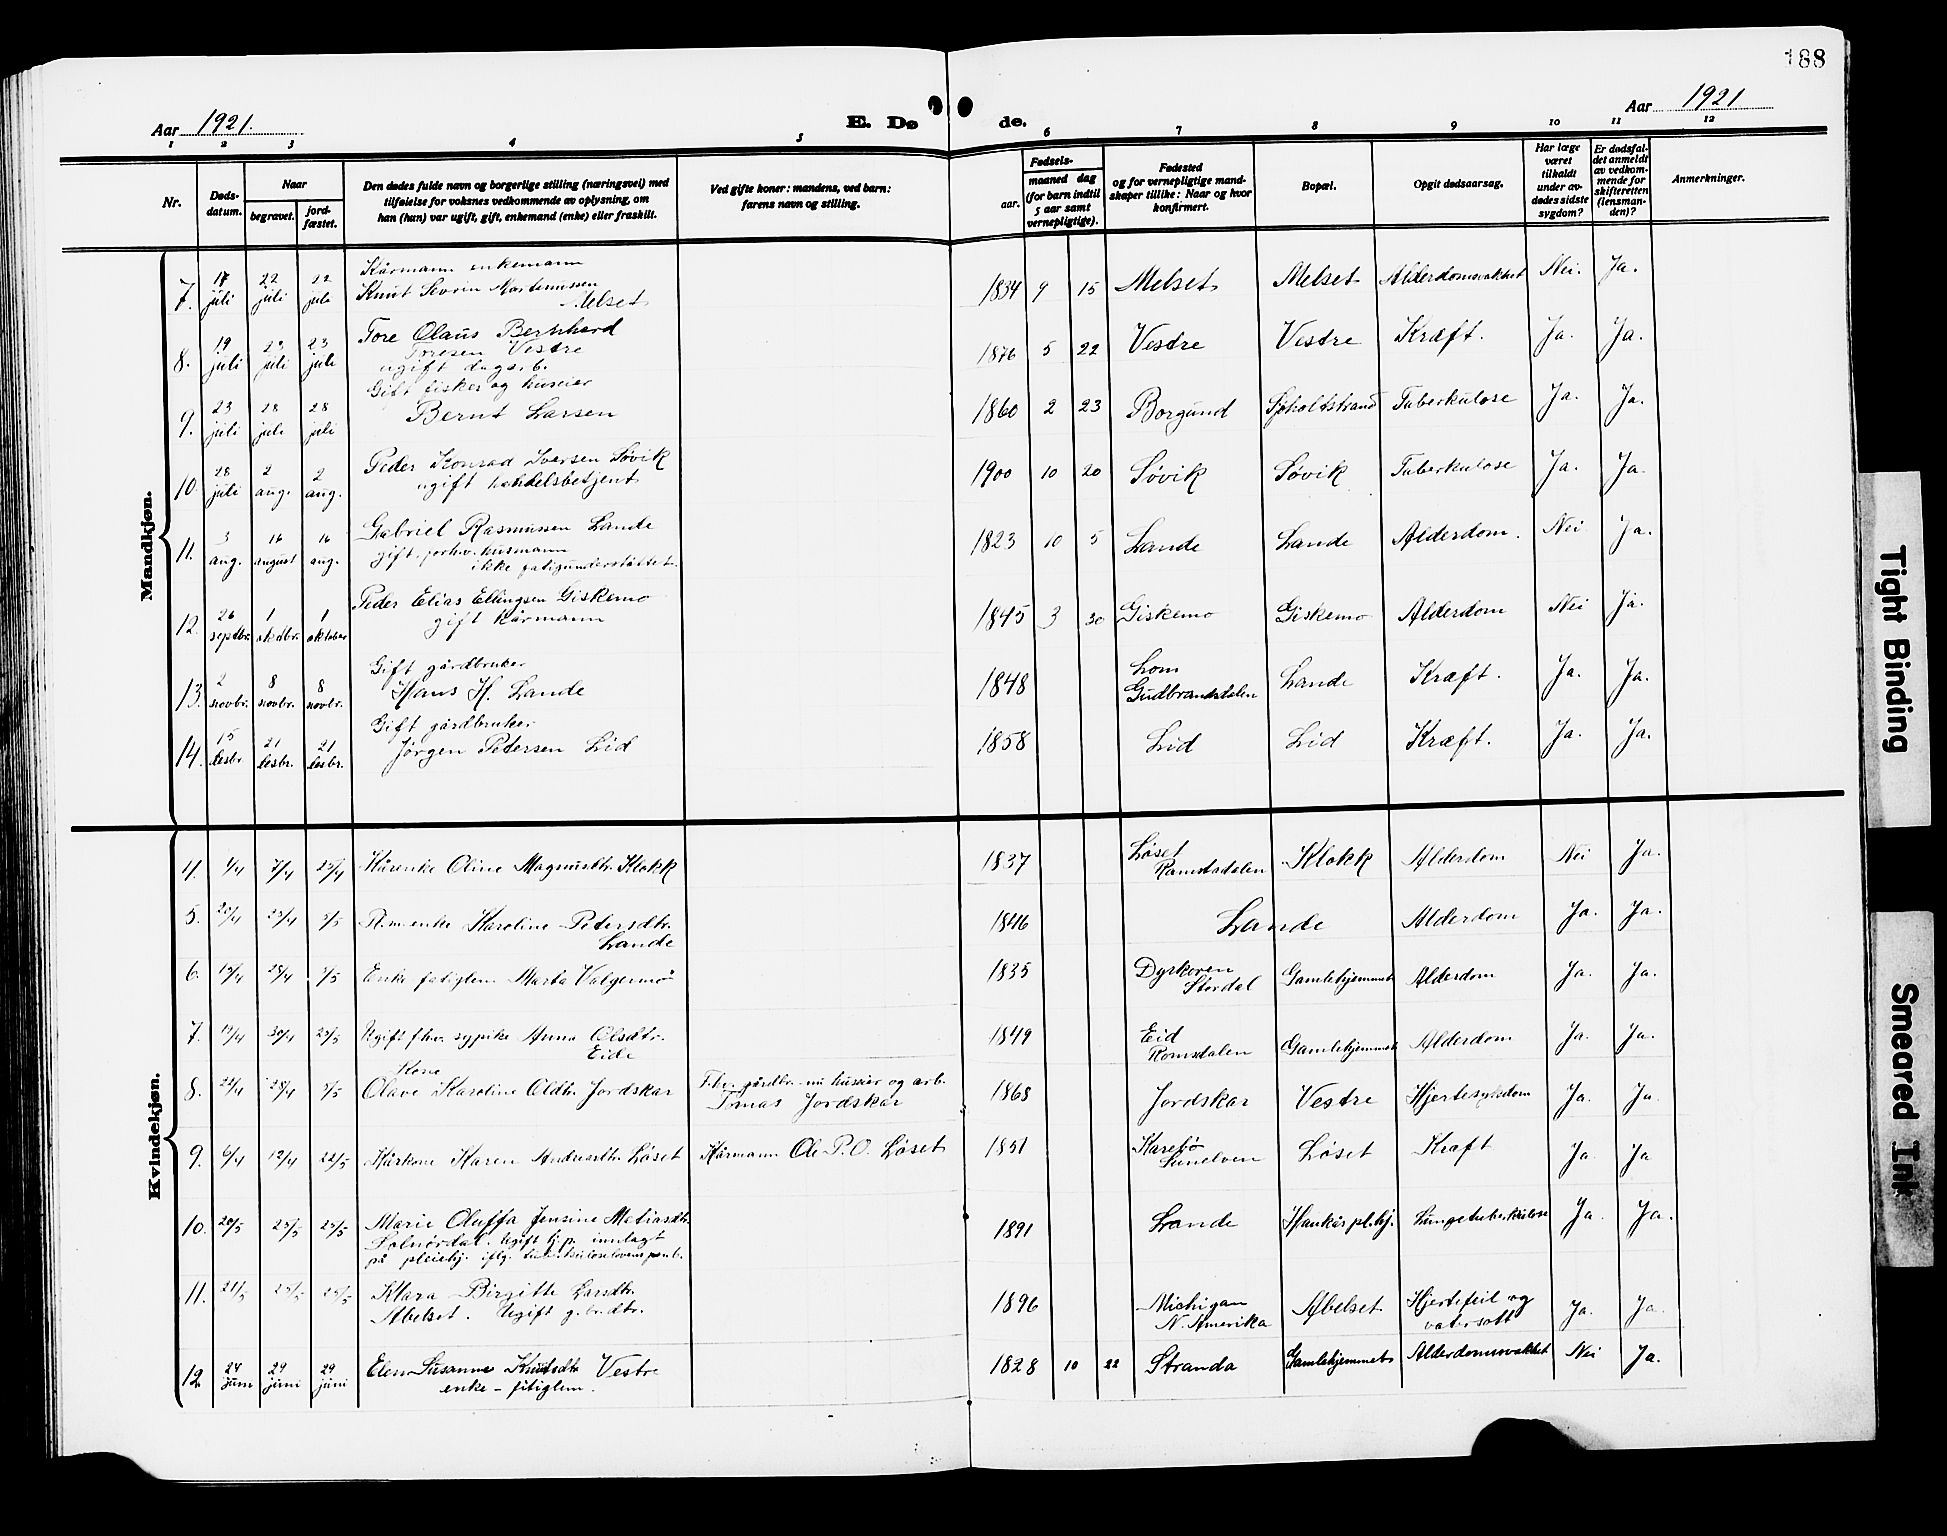 188
Aar 1921. E. Dø de. Aar 1921
1 2 3 4 5 6 7 8 9 10 11 12
Nr.
Dødsdatum.
Naar
begravet.
jordfæstet.
Den dødes fulde navn og borgerlige stilling (næringsvei) med
tilføielse for voksnes vedkommende av oplysning, om
han (hun) var ugift, gift, enkemand (enke) eller fraskilt.
Ved gifte koner: mandens, ved barn:
farens navn og stilling.
Fødsels-
aar.
maaned dag
(for barn indtil
5 aar samt
vernepligtige).
Fødested
og for vernepligtige mand-
skaper tillike: Naar og hvor
konfirmert.
Bopæl.
Opgit dødsaarsag.
Har læge
været
tilkaldt
under av-
dødes sidste
sygdom?
Er dødsfal-
det anmeldt
av vedkom-
mende for
skifteretten
(lensman-
den)?
Anmerkninger.
Mandkjøn.
Kårmann enkemann
7. 17 juli 22 juli 22 juli Knut Sevrin Mortenussen 1834 9 15 Melset Melset Alderdomsvakhet Nei. Ja.
Melset
8. 19 juli 23 juli 23 juli Tore Olaus Bernhard 1876 5 22 Vestre Vestre Kræft. Ja. Ja.
Toresen Vestre
ugift dagarb.
Gift fisker og huseier
9. 23 juli 28 juli 28 juli Bernt Larsen 1860 2 23 Borgund Sjøholtstrand Tuberkulose Ja. Ja.
10. 28 juli 2 aug. 2 aug. Peder Konrad Iversen Søvik 1900 10 20 Søvik Søvik Tuberkulose Ja. Ja.
ugift handelsbetjent
11. 3 aug. 16 august 16 aug. Gabriel Rasmussen Lande 1823 10 5 Lande Lande Alderdom. Nei Ja.
gift forhv. husmann
ikke fatigunderstøttet.
12. 26 septbr. 1 oktbr. 1 oktober Peder Elias Ellingsen Giskemo 1845 3 30 Giskemo Giskemo Alderdom Nei Ja.
gift kårmann
Gift gårdbruker
13. 2 novbr. 8 novbr. 8 novbr. Hans H. Lande 1848 Lom Gudbrandsdalen Lande Kræft. Ja. Ja.
Gift gårdbruker
14. 15 desbr 21 desbr. 21 desbr. Jørgen Petersen Lid 1858 Lid Lid Kræft. Ja. Ja.
Kvindekjøn.
4. 1/4 7/4 25/4 Kårenke Oline Magnusdtr. Klokk 1837 Løset Romsdalen Klokk Alderdom Nei Ja.
5. 20/4 25/4 1/5 Karoline Petersdtr. 1846 Lande Alderdom Ja. Ja.
Lande
6. 19/4 28/4 1/5 Enke fatiglem Marta Valgermo 1835 Dyrkoren Stordal Gamlehjemmet Alderdom Ja. Ja.
7. 19/4 30/4 25/5 Ugift fhv. sypike Anna Olsdtr. 1849 Eid Romsdalen Gamlehjemmet Alderdom Ja. Ja.
Eide
Kone
8. 22/4 28/4 1/5 Olave Karoline Oldtr. Jordskar F.hv. gårdbr. nu huseier og arb. Tomas Jordskar 1868 Jordskar Vestre Hjertesykdom Ja. Ja.
9. 6/4 12/4 22/5 Kårkone Karen Andreasdtr. Løset Kårmann Ole P.O. Løset 1851 Sunelven Løset Kræft Ja. Ja
10. 20/5 25/5 25/5 Marie Oluffa Jensine Matiasdtr. 1891 Lande Haukås pleihj. Lungetuberkulose Ja. Ja.
Solnørdal. Ugift innlagt
på pleiehj. iflg. tuberkuloselovens
11. 21/5 25/5 25/5 Klara Birgitte Larsdtr. 1896 Michigan N. Amerika Abelset Hjertefeil og vatersott Ja. Ja.
Abelset. Ugift g.br.dtr.
12 24 juni 29 juni 29 juni Elen Susanne Knutsdtr. Vestre 1828 10 22 Stranda Gamlehjemmet Alderdomsvakhet Nei Ja.
enke - fatiglem.
Tight Binding
Smeared Ink